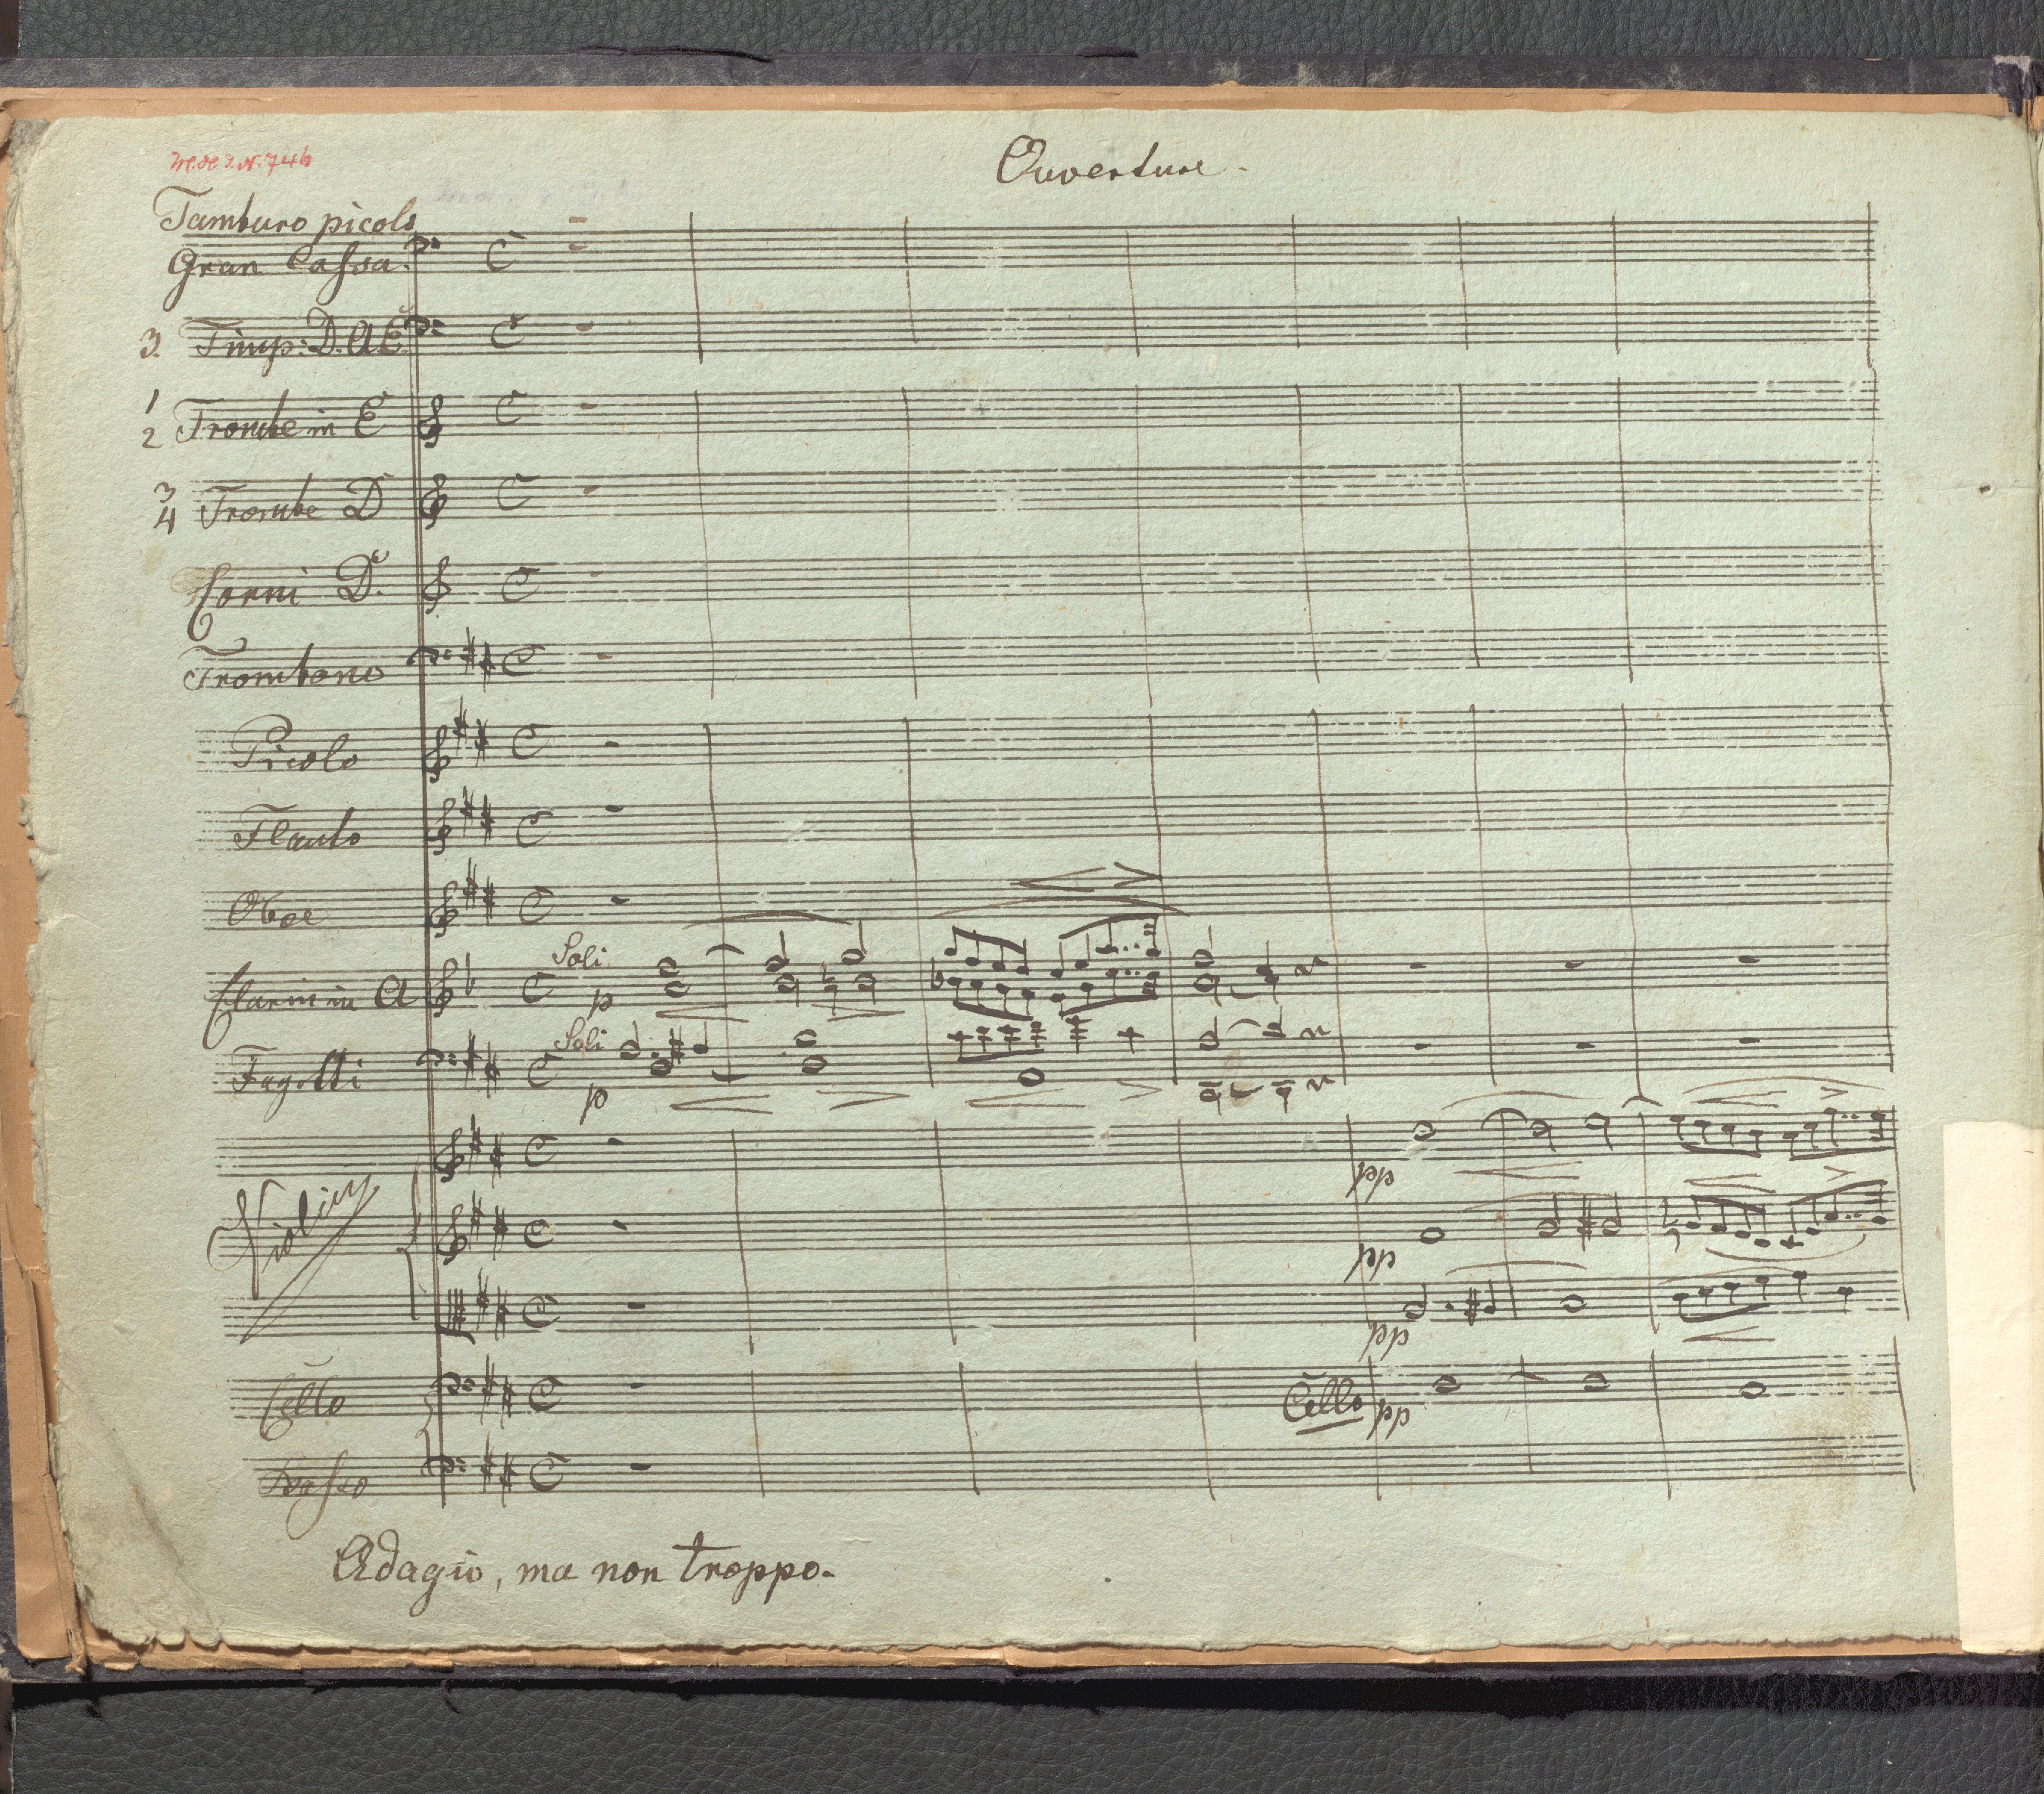 Ouverture.
Tamburo picolo
Gran Cassa.
3. Timp: D. A E.
1
2 Trombe in E
3
4 Trombe D
Corni D.
Trombone
Picolo
Flauto
Oboe
Soli
Clarin in A
p
Soli
Fagotti
p
pp
Violini
pp
pp
Cello
Cello pp
Basso
Adagio, ma non troppo.